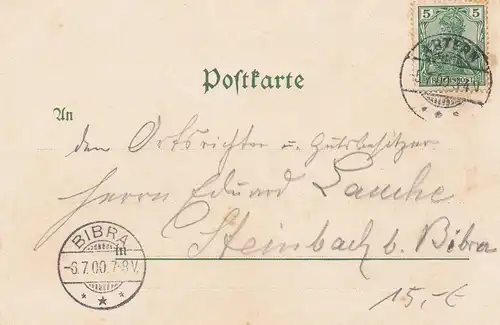 5 5
ARTERN
Postkarte
An
den Ortsrichter u. Gutsbesitzer
Herrn Eduard Lauche
in
Steinbach b. Bibra
BIBRA
-6.7.00.7-8V.
15,-€